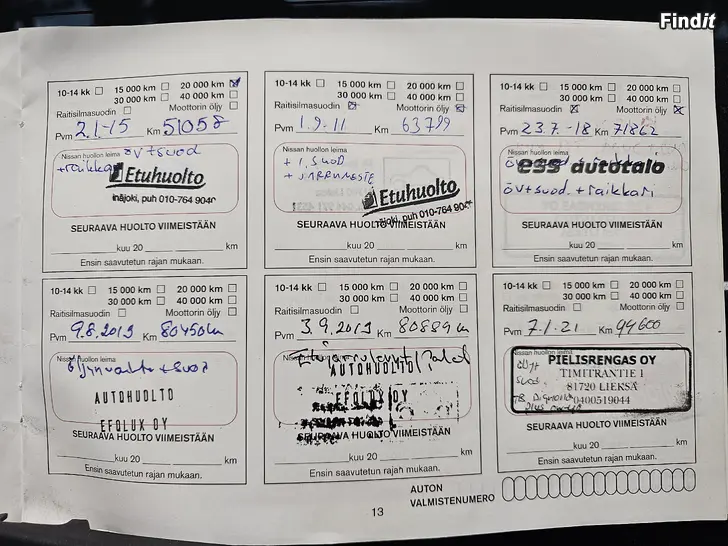 Findit
10-14 kk 15 000 km 20 000 km
30 000 km 40 000 km
Raitisilmasuodin Moottorin öljy
Pvm 2.1-15 Km 51058
Nissan huollon leima
öv+suod
+raikkari
Etuhuolto
puh 010-764 904
SEURAAVA HUOLTO VIIMEISTÄÄN
kuu 20 km
Ensin saavutetun rajan mukaan.
10-14 kk 15 000 km 20 000 km
30 000 km 40 000 km
Raitisilmasuodin Moottorin öljy
Pvm 1.9.11 Km 63799
Nissan huollon leima
+ I.SUOD
+ JARRUNESTE
Etuhuolto
puh 010-764 904
SEURAAVA HUOLTO VIIMEISTÄÄN
kuu 20 km
Ensin saavutetun rajan mukaan.
10-14 kk 15 000 km 20 000 km
30 000 km 40 000 km
Raitisilmasuodin Moottorin öljy
Pvm 23.7.-18 Km 71862
Nissan huollon leima
ess autotalo
öv+suod.+raikkari
SEURAAVA HUOLTO VIIMEISTÄÄN
kuu 20 km
Ensin saavutetun rajan mukaan.
10-14 kk 15 000 km 20 000 km
30 000 km 40 000 km
Raitisilmasuodin Moottorin öljy
Pvm 9.8.2019 Km 80450km
Nissan huollon leima
öljynvaihto+suod
AUTOHUOLTO
EFOLUX OY
SEURAAVA HUOLTO VIIMEISTÄÄN
kuu 20 km
Ensin saavutetun rajan mukaan.
10-14 kk 15 000 km 20 000 km
30 000 km 40 000 km
Raitisilmasuodin Moottorin öljy
Pvm 3.9.2019 Km 80889
Nissan huollon leima
AUTOHUOLTO
EFOLUX OY
SEURAAVA HUOLTO VIIMEISTÄÄN
kuu 20 km
Ensin saavutetun rajan mukaan.
10-14 kk 15 000 km 20 000 km
30 000 km 40 000 km
Raitisilmasuodin Moottorin öljy
Pvm 7.1.21 Km 99600
Nissan huollon leima
PIELISRENGAS OY
TIMITRANTIE 1
81720 LIEKSA
0400519044
öljyt
suod.
SEURAAVA HUOLTO VIIMEISTÄÄN
kuu 20 km
Ensin saavutetun rajan mukaan.
AUTON
VALMISTENUMERO
13